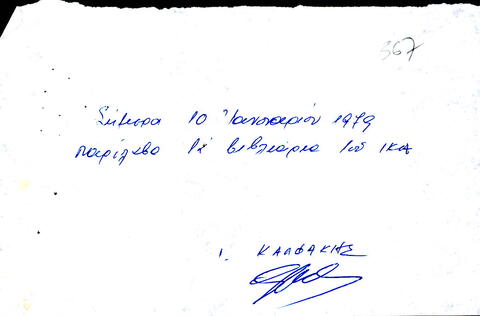 367
Σήμερα 10 Ἰανουαρίου 1979
παρέλαβα 12 βιβλιάρια τοῦ ΙΚΑ
Ι. ΚΑΛΦΑΚΗΣ